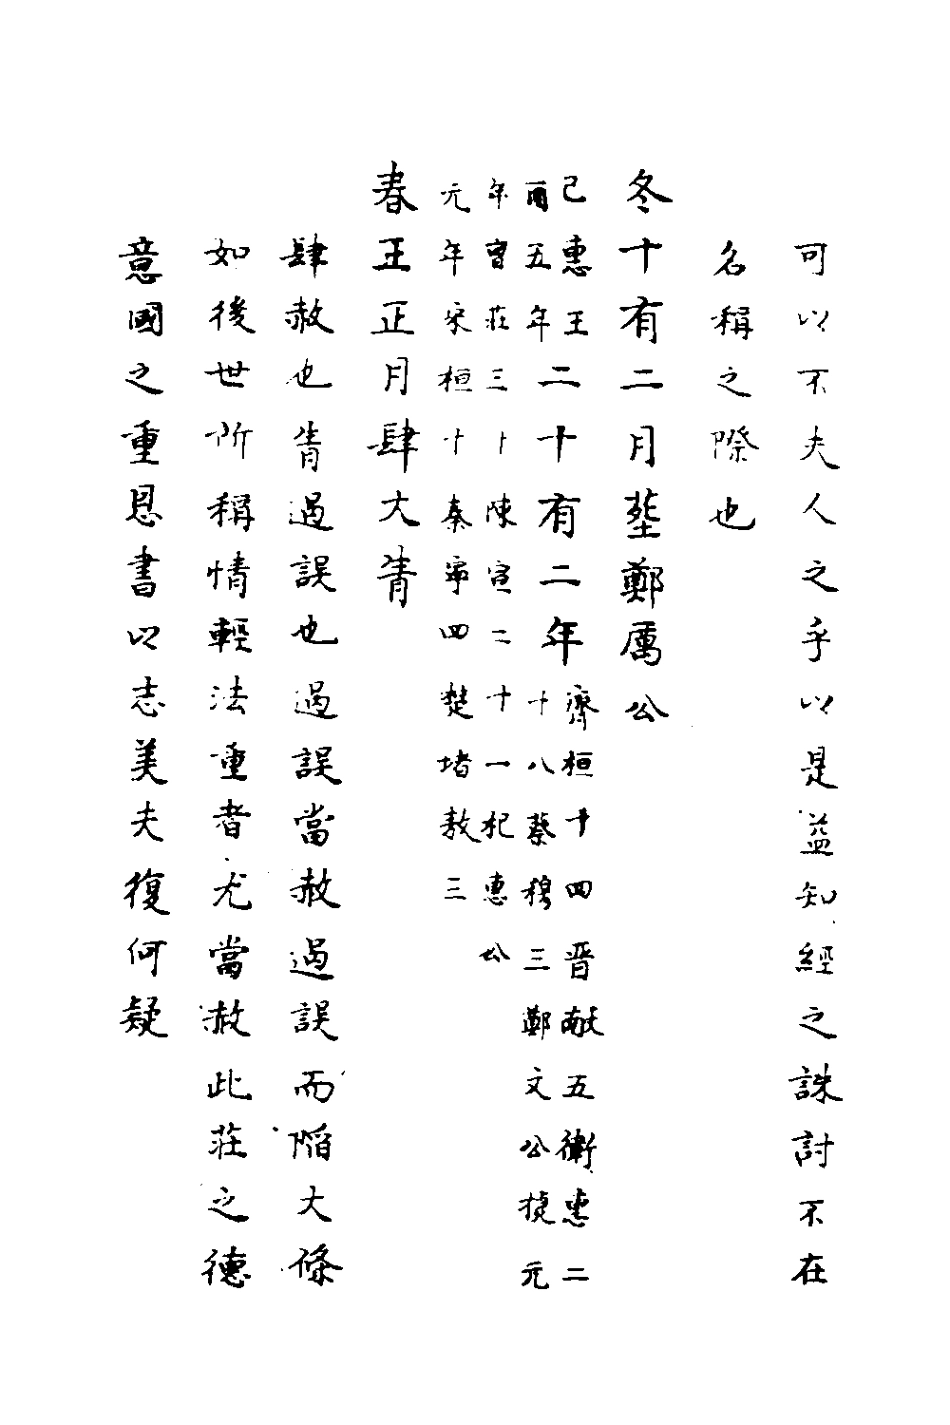 可以不夫人之乎以是益知經之誅討不在
名稱之際也
冬十有二月塟鄭厲公
己惠王
酉五年
二十有二年
齊桓十四晋献五衛惠二
十八蔡穆三鄭文公捷元
年曹莊三十陳宣二十一杞惠公
元年宋桓十秦寗四楚堵敖三
春王正月肆大眚
肆赦也眚過誤也過誤當赦過誤而陷大條
如後世所稱情輕法重者尤當赦此莊之德
意國之重恩書以志美夫復何疑